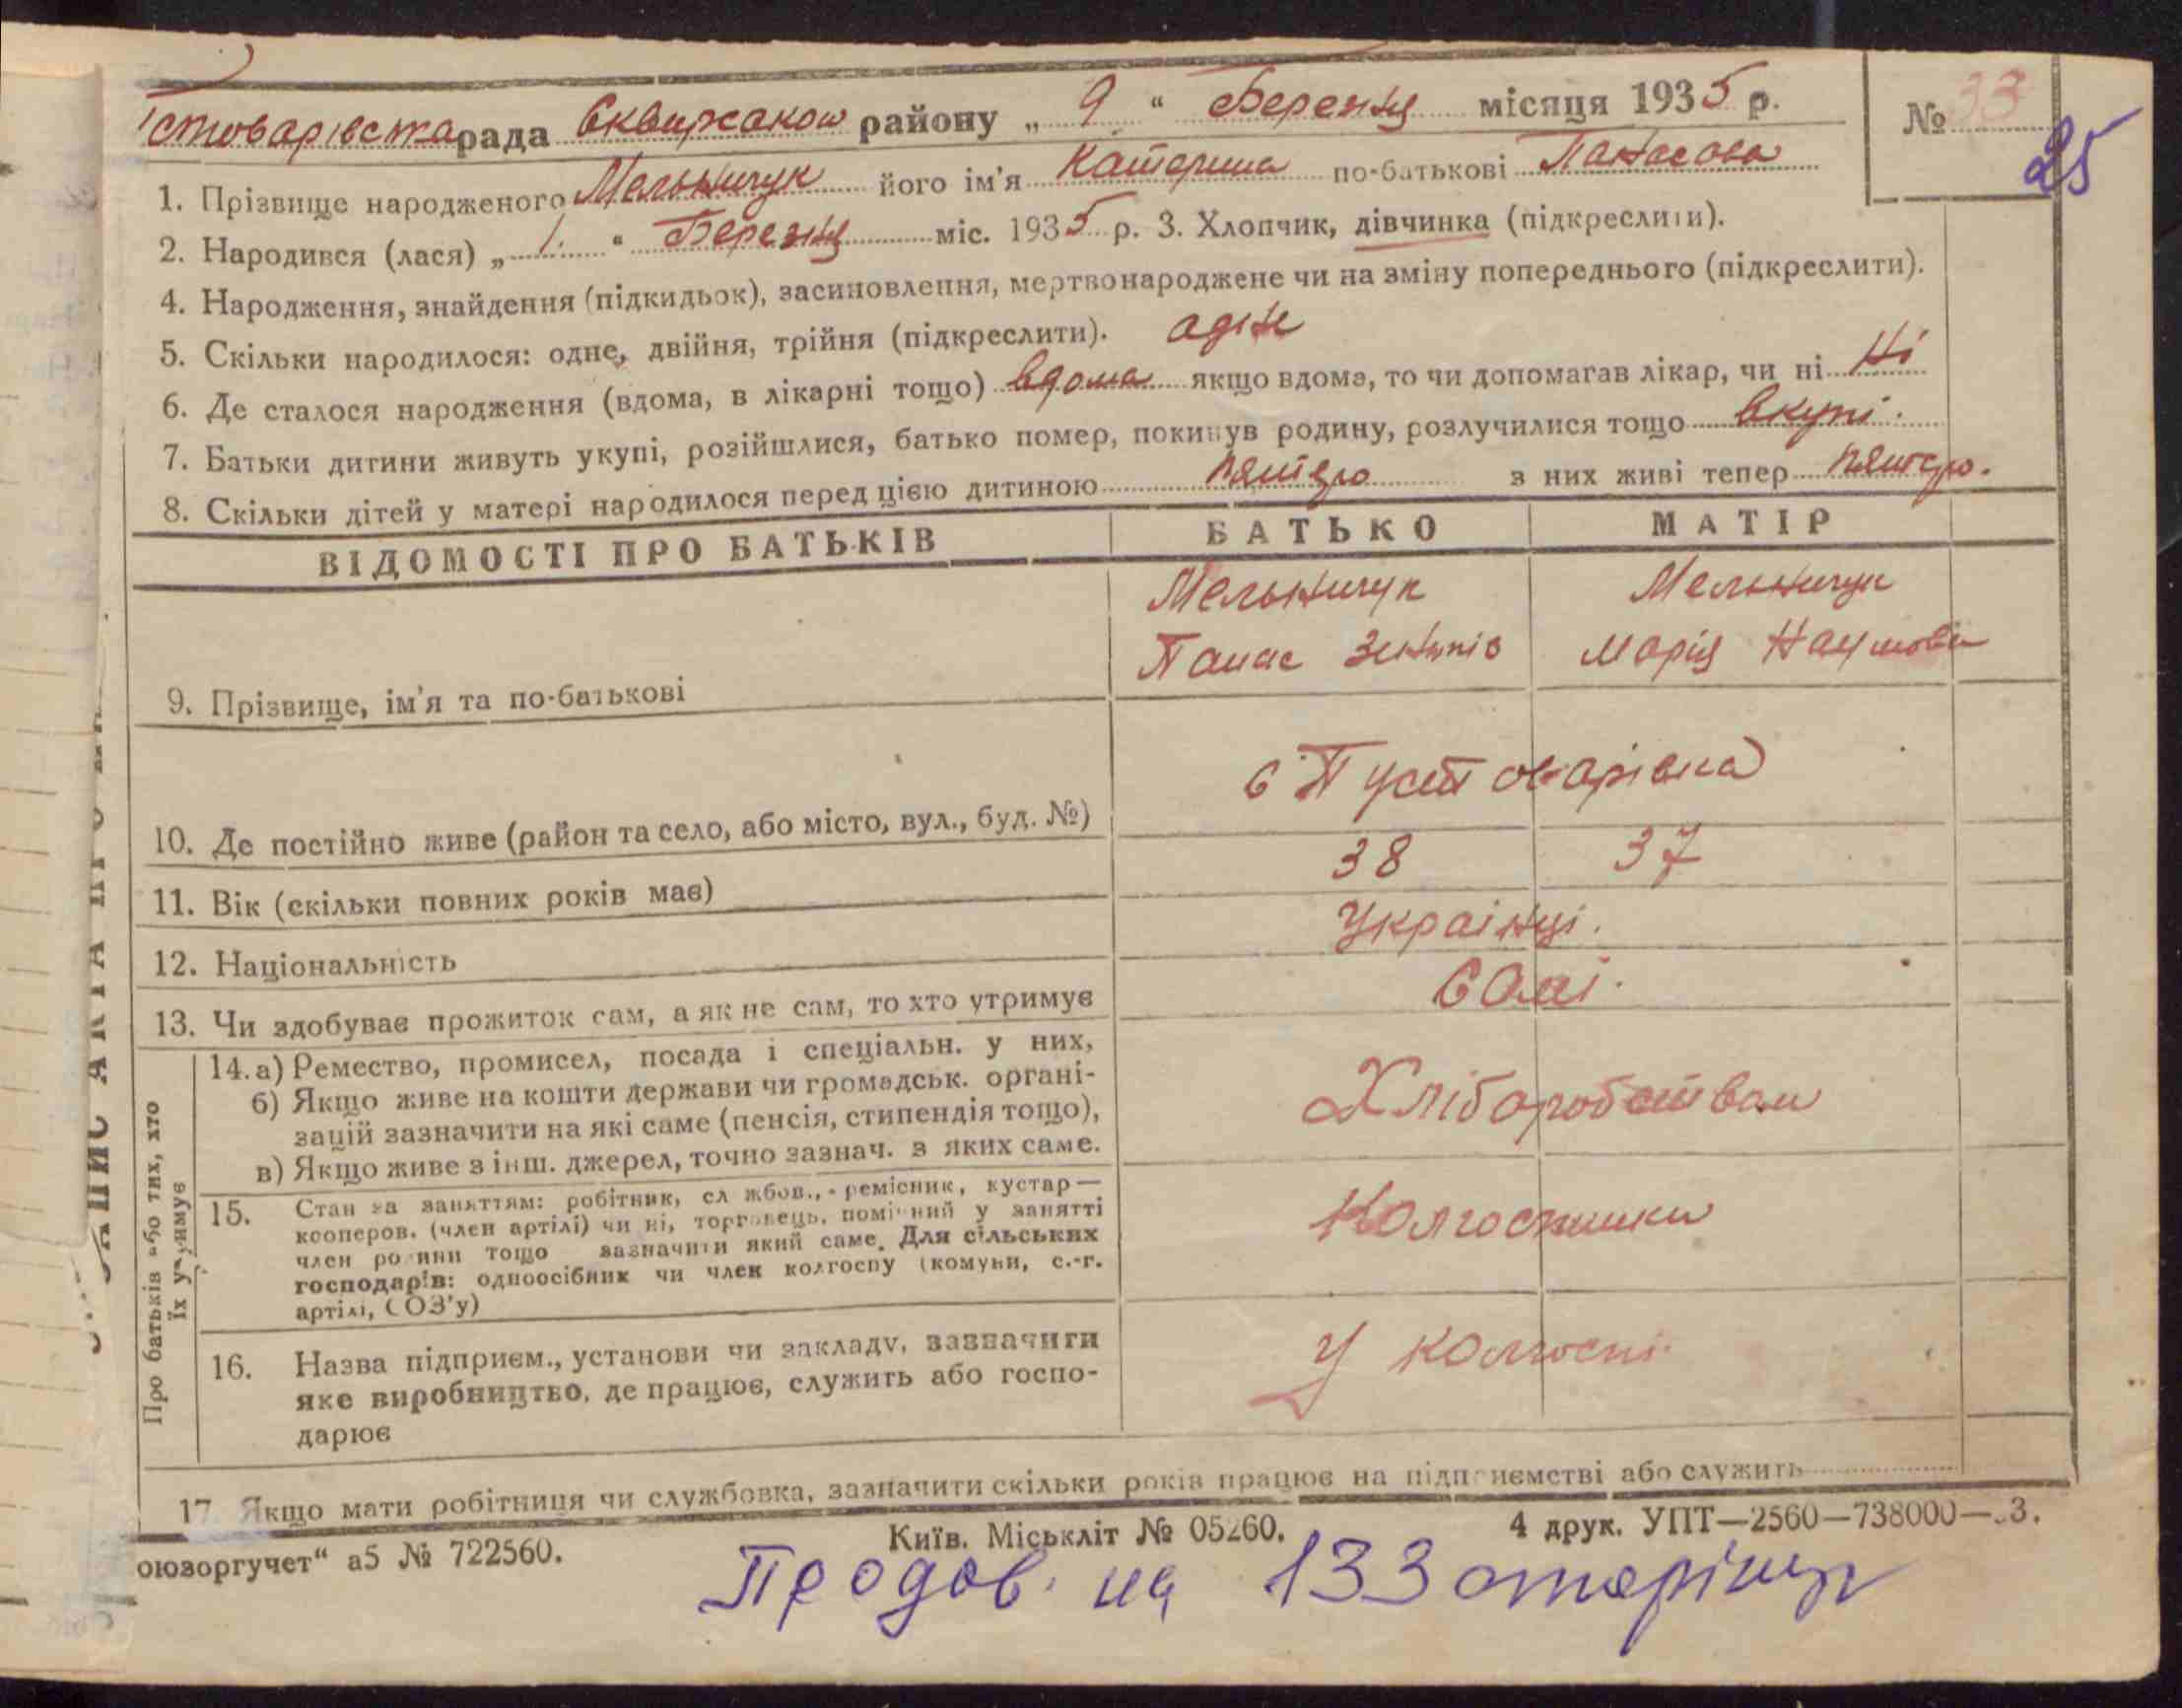 стоварівська рада Сквирсаком району „ 9 “ Березня місяця 1935 р.
№ 33
25
1. Прізвище народженого Мельничук його ім'я Катерина по-батькові Панасова
2. Народився (лася) „ 1. “ Березня міс. 1935 р. 3. Хлопчик, дівчинка (підкреслити).
4. Народження, знайдення (підкидьок), засиновлення, мертвонароджене чи на зміну попереднього (підкреслити).
5. Скільки народилося: одне, двійня, трійня (підкреслити). адне
6. Де сталося народження (вдома, в лікарні тощо) вдома якщо вдома, то чи допомагав лікар, чи ні Ні
7. Батьки дитини живуть укупі, розійшлися, батько помер, покинув родину, розлучилися тощо вкупі.
8. Скільки дітей у матері народилося перед цією дитиною пятеро з них живі тепер пятеро.
ВІДОМОСТІ ПРО БАТЬКІВ БАТЬКО МАТІР
Мельничук Мельничук
Панас Марія Наумови
9. Прізвище, ім'я та по-батькові
с Пустоварівка
10. Де постійно живе (район та село, або місто, вул., буд. №)
38 37
11. Вік (скільки повних років має)
Українці.
12. Національність
Самі.
13. Чи здобуває прожиток сам, а як не сам, то хто утримує
Про батьків або тих, хто
їх утримує
14. а) Ремество, промисел, посада і спеціальн. у них,
б) Якщо живе на кошти держави чи громадськ. органі-
зацій зазначити на які саме (пенсія, стипендія тощо),
в) Якщо живе з інш. джерел, точно зазнач. з яких саме.
Хліборобством
15. Стан за заняттям: робітник, сл жбов., ремісник, кустар—
кооперов. (член артілі) чи ні, торговець, помічний у занятті
член родини тощо зазначити який саме. Для сільських
господарів: одноосібник чи член колгоспу (комуни, с.-г.
артілі, СОЗ'у)
Колгоспники
16. Назва підприєм., установи чи закладу, зазначити
яке виробництво, де працює, служить або госпо-
дарює
У колгоспі.
17. Якщо мати робітниця чи службовка, зазначити скільки років працює на підприємстві або служить
оюзоргучет“ а5 № 722560. Київ. Міськліт № 05260. 4 друк. УПТ—2560—738000—33.
Продов. на 133 сторінці